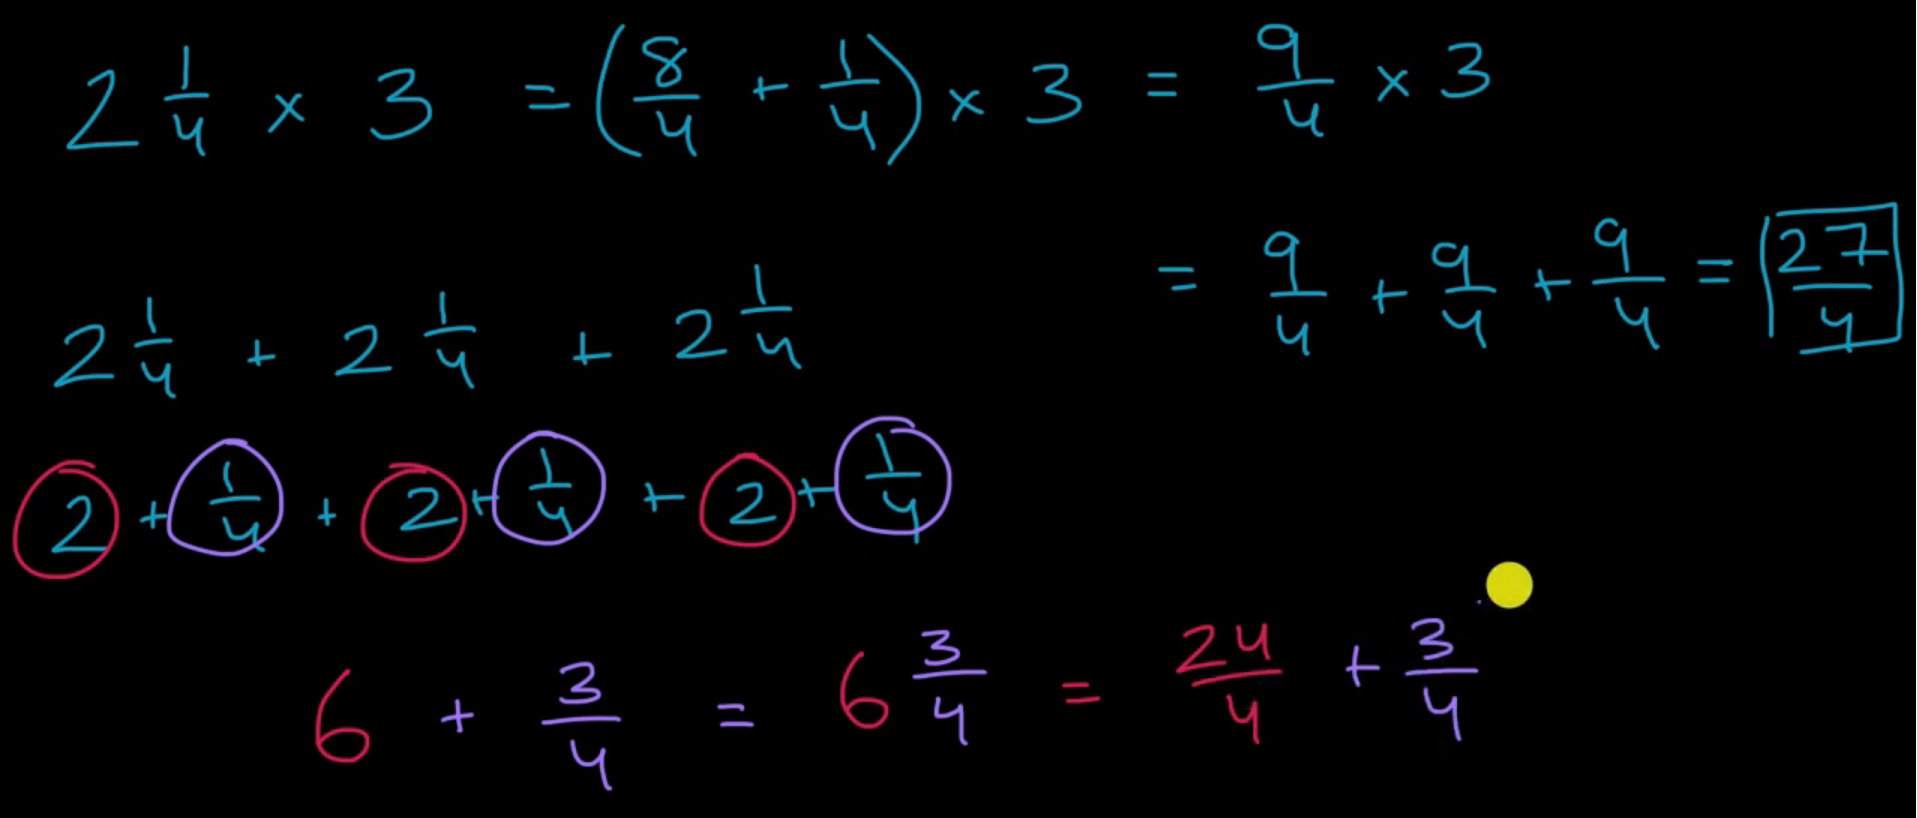 2 1/4 × 3 = (8/4 + 1/4) × 3 = 9/4 × 3
= 9/4 + 9/4 + 9/4 = 27/4
2 1/4 + 2 1/4 + 2 1/4
2 + 1/4 + 2 + 1/4 + 2 + 1/4
6 + 3/4 = 6 3/4 = 24/4 + 3/4